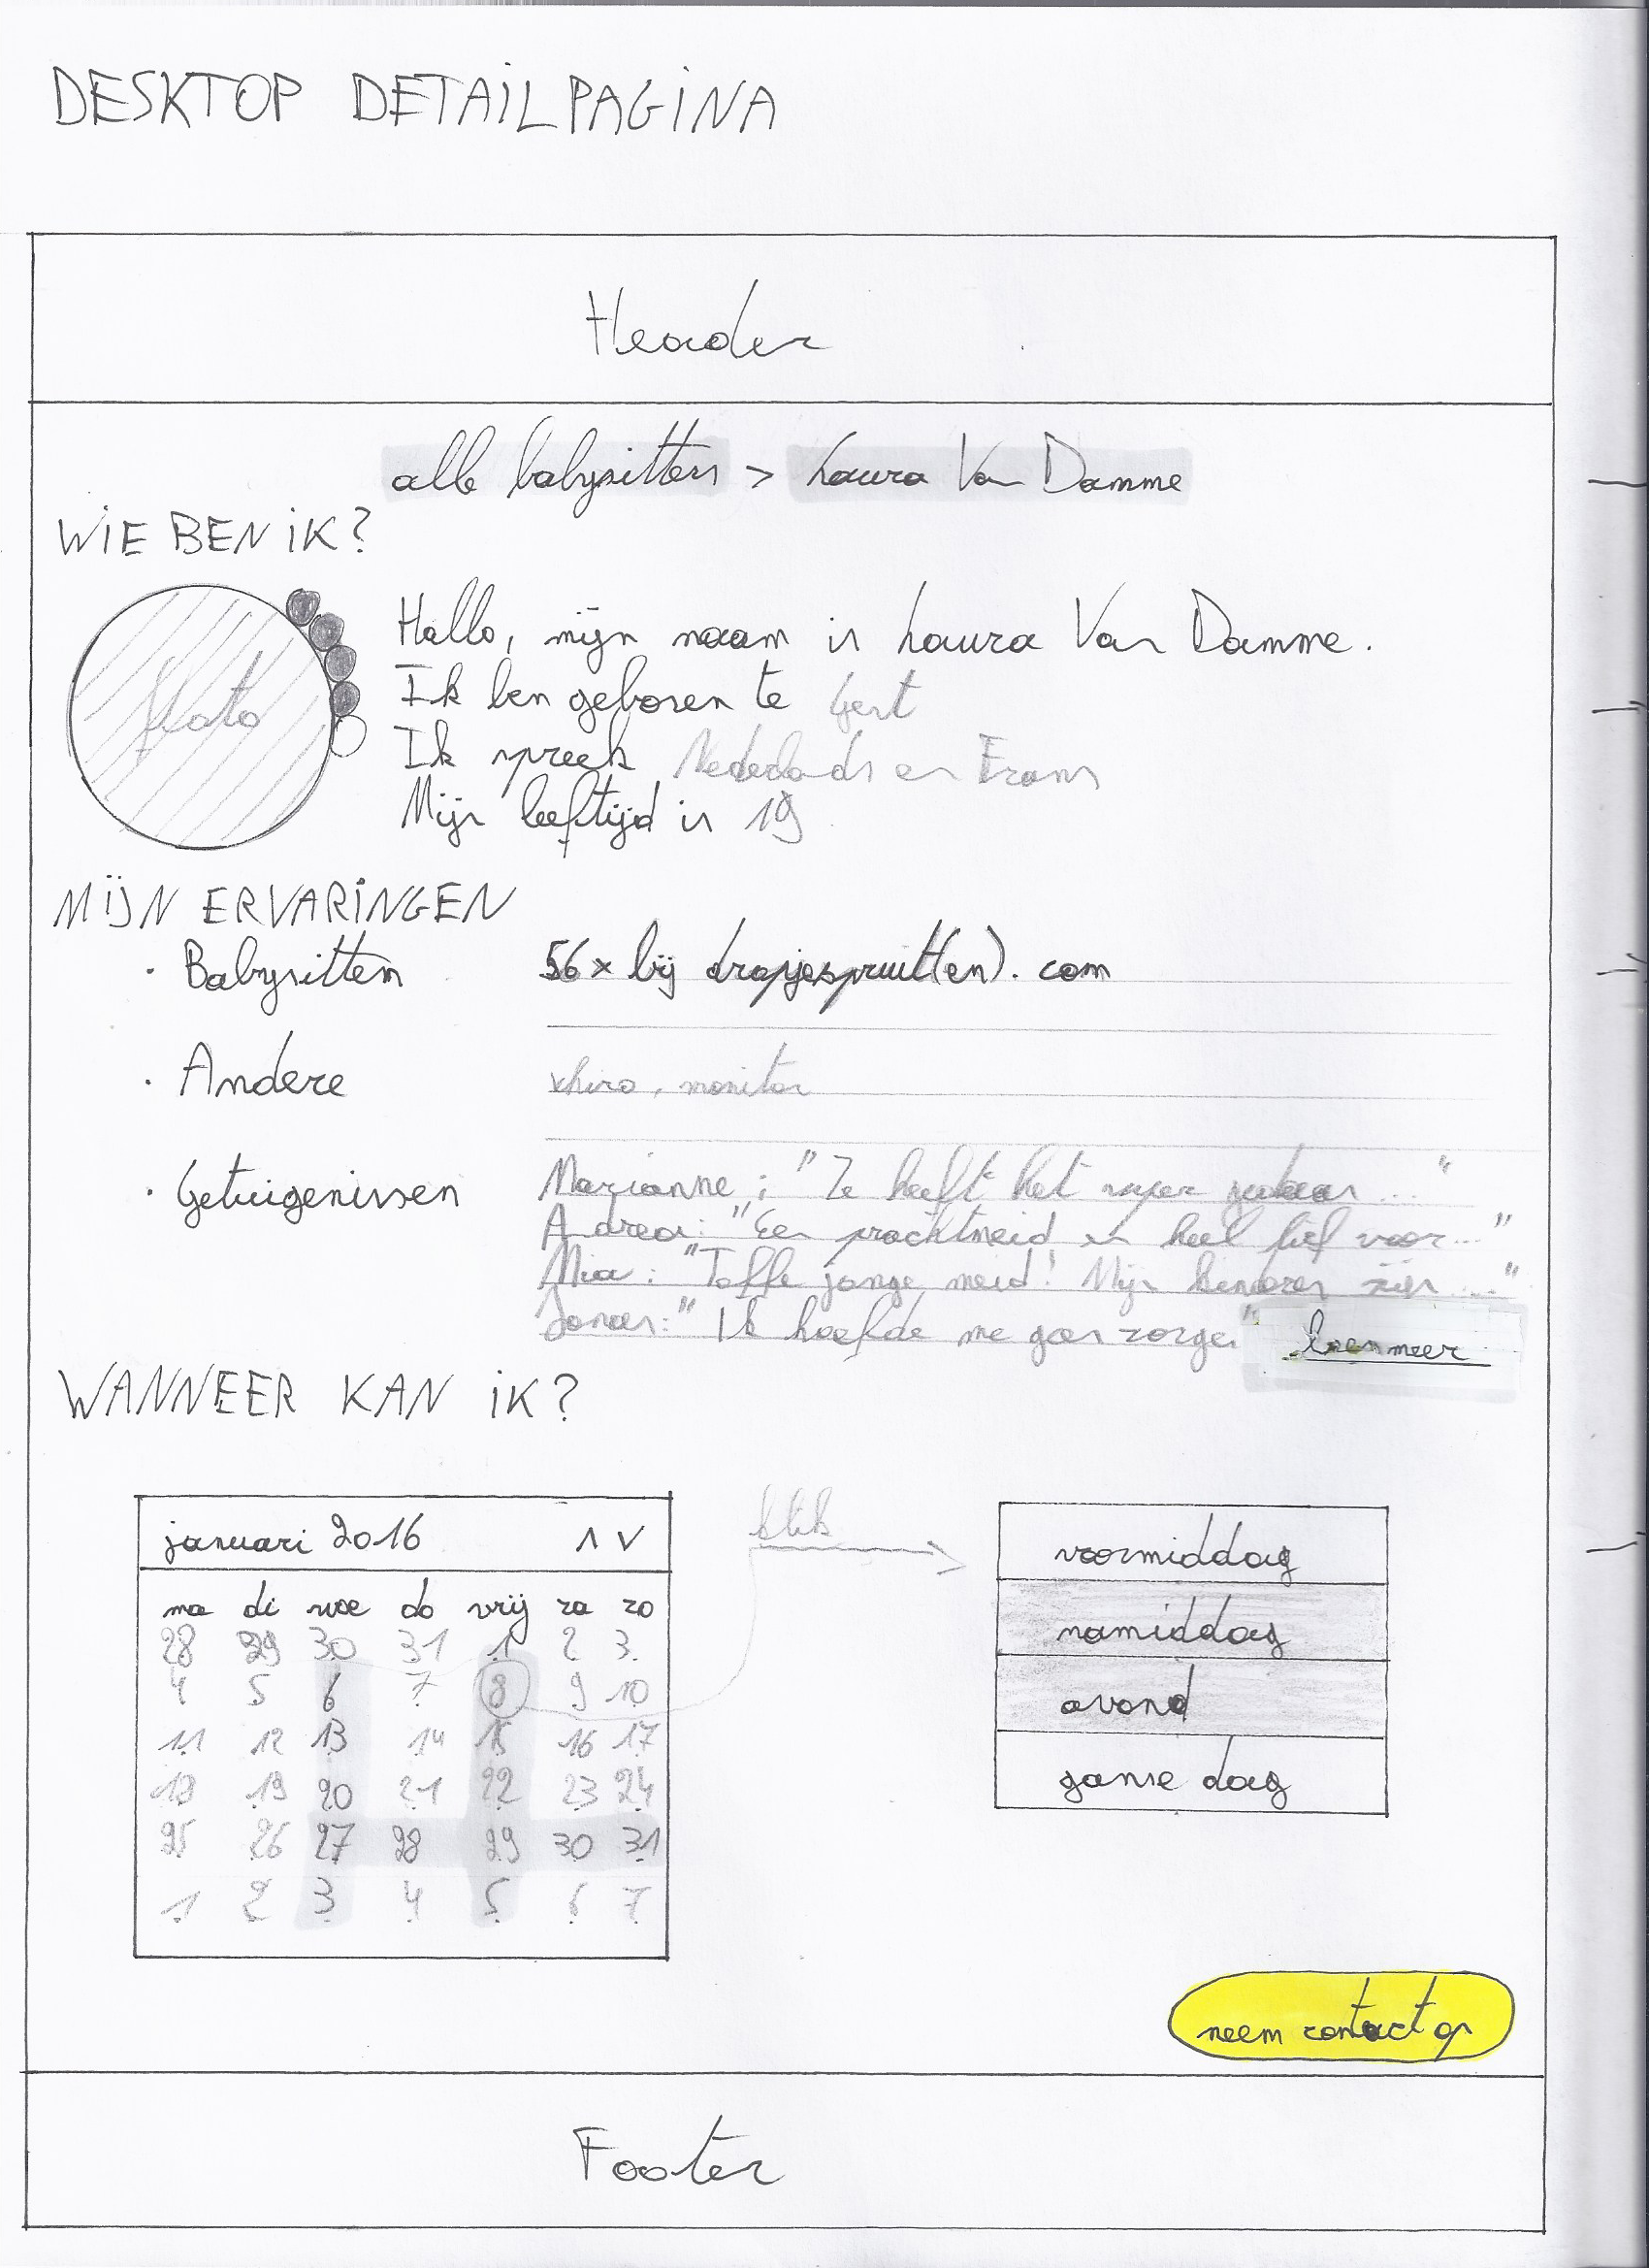 DESKTOP DETAILPAGINA
Header
alle babysitters > Laura Van Damme
WIE BEN IK?
foto
Hallo, mijn naam is Laura Van Damme.
Ik ben geboren te Gent
Ik spreek Nederlands en Frans
Mijn leeftijd is 19
MIJN ERVARINGEN
· Babysitten 56x bij dropjespruit(en).com
· Andere chiro, monitor
· Getuigenissen Marianne: "Ze heeft het super gedaan ..."
Andrea: "Een prachtmeid en heel lief voor ..."
Mia: "Toffe jonge meid! Mijn kinderen zijn ...."
Jonas: "Ik hoefde me geen zorgen" lees meer
WANNEER KAN IK?
januari 2016 ∧ ∨
ma di woe do vrij za zo
28 29 30 31 1 2 3
4 5 6 7 8 9 10
11 12 13 14 15 16 17
18 19 20 21 22 23 24
25 26 27 28 29 30 31
1 2 3 4 5 6 7
klik
voormiddag
namiddag
avond
ganse dag
neem contact op
Footer